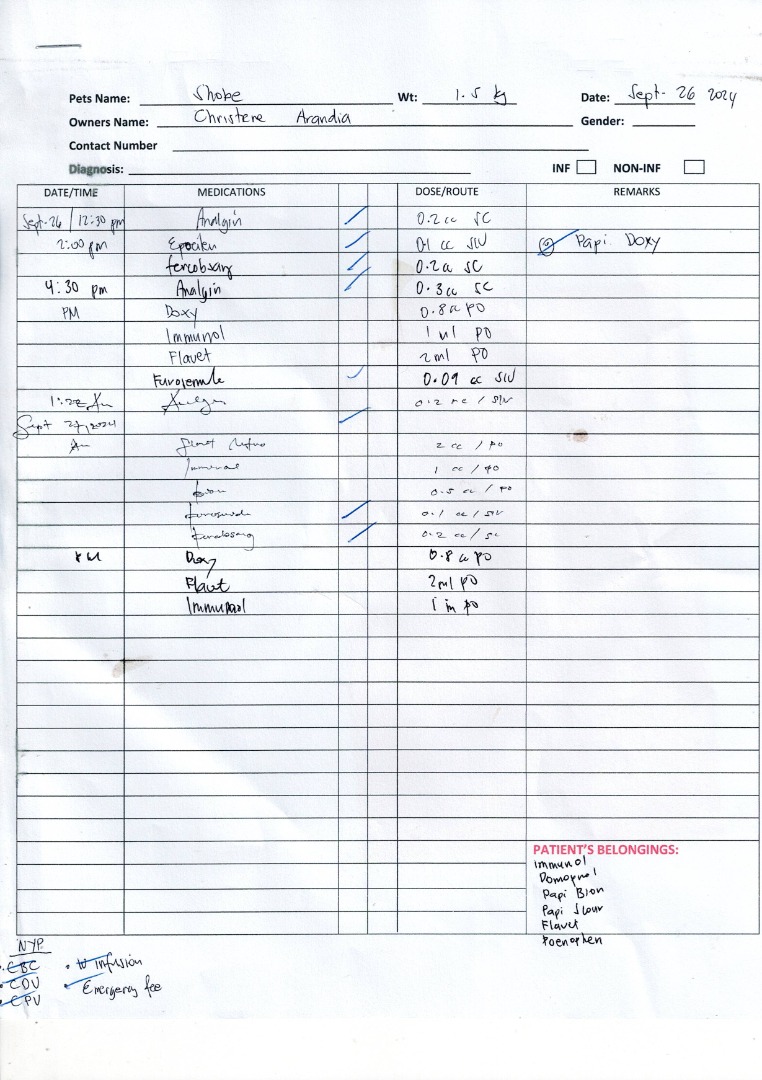 Pets Name: Shobe Wt: 1.5 kg Date: Sept. 26 2024
Owners Name: Christene Arandia Gender:
Contact Number
Diagnosis: INF NON-INF
DATE/TIME MEDICATIONS DOSE/ROUTE REMARKS
Sept. 26 / 12:30 pm Analgin 0.2 cc SC
2:00 pm 0.1 cc SIV Papi Doxy
0.2 cc SC
4:30 pm Analgin 0.3 cc SC
PM Doxy 0.8 cc PO
Immunol 1 ml PO
Flavet 2 ml PO
Furosemide 0.09 cc SIV
0.2 cc / SIV
Sept 27, 2024
2 cc / PO
1 cc / PO
0.5 cc / PO
0.1 cc / SIV
0.2 cc / SC
Doxy 0.8 cc PO
Flavet 2 ml PO
Immunol PO
PATIENT'S BELONGINGS:
Immunol
Papi Bion
Papi Scour
Flavet
NYP
CBC IV infusion
CDV Emergency fee
CPV